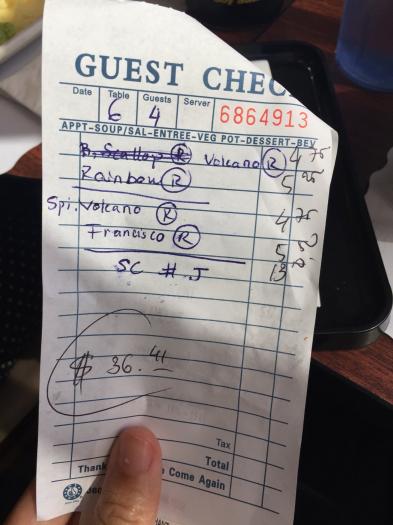 GUEST CHEC
Date Table Guests Server
6 4 6864913
APPT-SOUP/SAL-ENTREE-VEG POT-DESSERT-BEV
B. Scallop R Volcano R 4 75
Rainbow R 5
Spi. Volcano R 4 75
Francisco R 5 50
SC # J 13
$ 36.41
Tax
Total
Thank Come Again